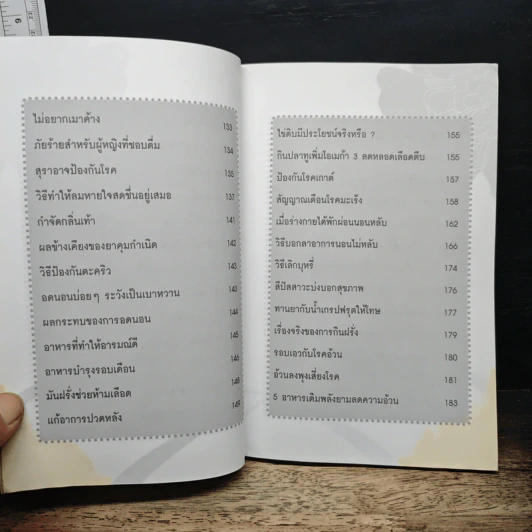 6
ไม่อยากเมาค้าง 133
ภัยร้ายสำหรับผู้หญิงที่ชอบดื่ม 134
สุราอาจป้องกันโรค 135
วิธีทำให้ลมหายใจสดชื่นอยู่เสมอ 137
กำจัดกลิ่นเท้า 141
ผลข้างเคียงของยาคุมกำเนิด 142
วิธีป้องกันตะคริว 143
อดนอนบ่อยๆ ระวังเป็นเบาหวาน 143
ผลกระทบของการอดนอน 144
อาหารที่ทำให้อารมณ์ดี 145
อาหารบำรุงรอบเดือน 146
มันฝรั่งช่วยห้ามเลือด 148
แก้อาการปวดหลัง 149
ไข่ดิบมีประโยชน์จริงหรือ ? 155
กินปลาทูเพิ่มโอเมก้า 3 ลดหลอดเลือดตีบ 155
ป้องกันโรคเกาต์ 157
สัญญาณเตือนโรคมะเร็ง 158
เมื่อร่างกายได้พักผ่อนนอนหลับ 162
วิธีบอกลาอาการนอนไม่หลับ 166
วิธีเลิกบุหรี่ 174
สีปัสสาวะบ่งบอกสุขภาพ 176
ทานยากับน้ำเกรปฟรุตให้โทษ 177
เรื่องจริงของการกินฝรั่ง 179
รอบเอวกับโรคอ้วน 180
อ้วนลงพุงเสี่ยงโรค 181
5 อาหารเติมพลังยามลดความอ้วน 183